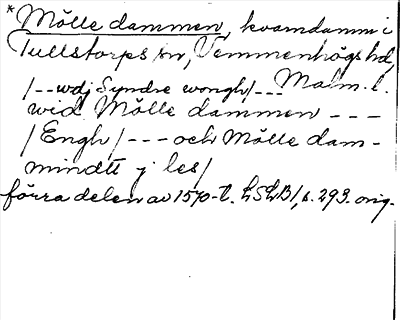 *Mölle dammen, kvarndamm i
Tullstorps sn, Vemmenhögs hd,
/--wdj Syndre wongh/--- Malm. l.
wid Mölle dammen ---
/Engh/ --- och Mölle dam-
mindtt j les/
förra delen av 1570-t. LSLB1, s. 293. orig.